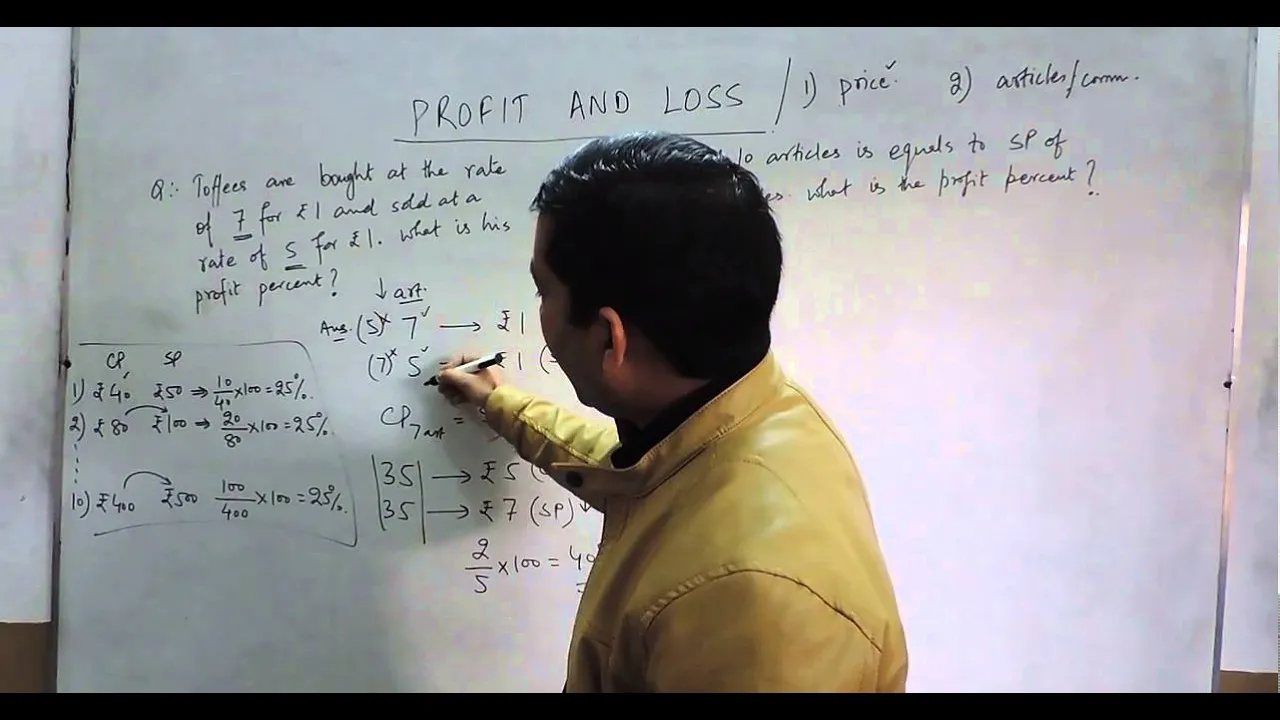 PROFIT AND LOSS / 1) price✓. 2) articles/comm.
Q:- Toffees are bought at the rate
of 7 for ₹1 and sold at a
rate of 5 for ₹1. what is his
profit percent?
10 articles is equals to SP of
what is the profit percent?
↓ art.
Ans. (5)× 7✓ → ₹1
(7)× 5✓ ₹1
CP7 art =
|35| → ₹5
|35| → ₹7 (SP) ↓
2/5 × 100 = 40
CP SP
1) ₹40 ₹50 ⇒ 10/40 × 100 = 25%.
2) ₹80 ₹100 → 20/80 × 100 = 25%.
10) ₹400 ₹500 100/400 × 100 = 25%.